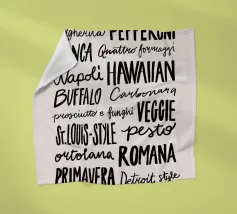 gherita PEPPERONI
NCA Quattro formaggi
Napoli HAWAIIAN
BUFFALO Carbonara
prosciutto e funghi VEGGIE
St.LOUIS-STYLE pesto
ortolana ROMANA
PRIMAVERA Detroit style